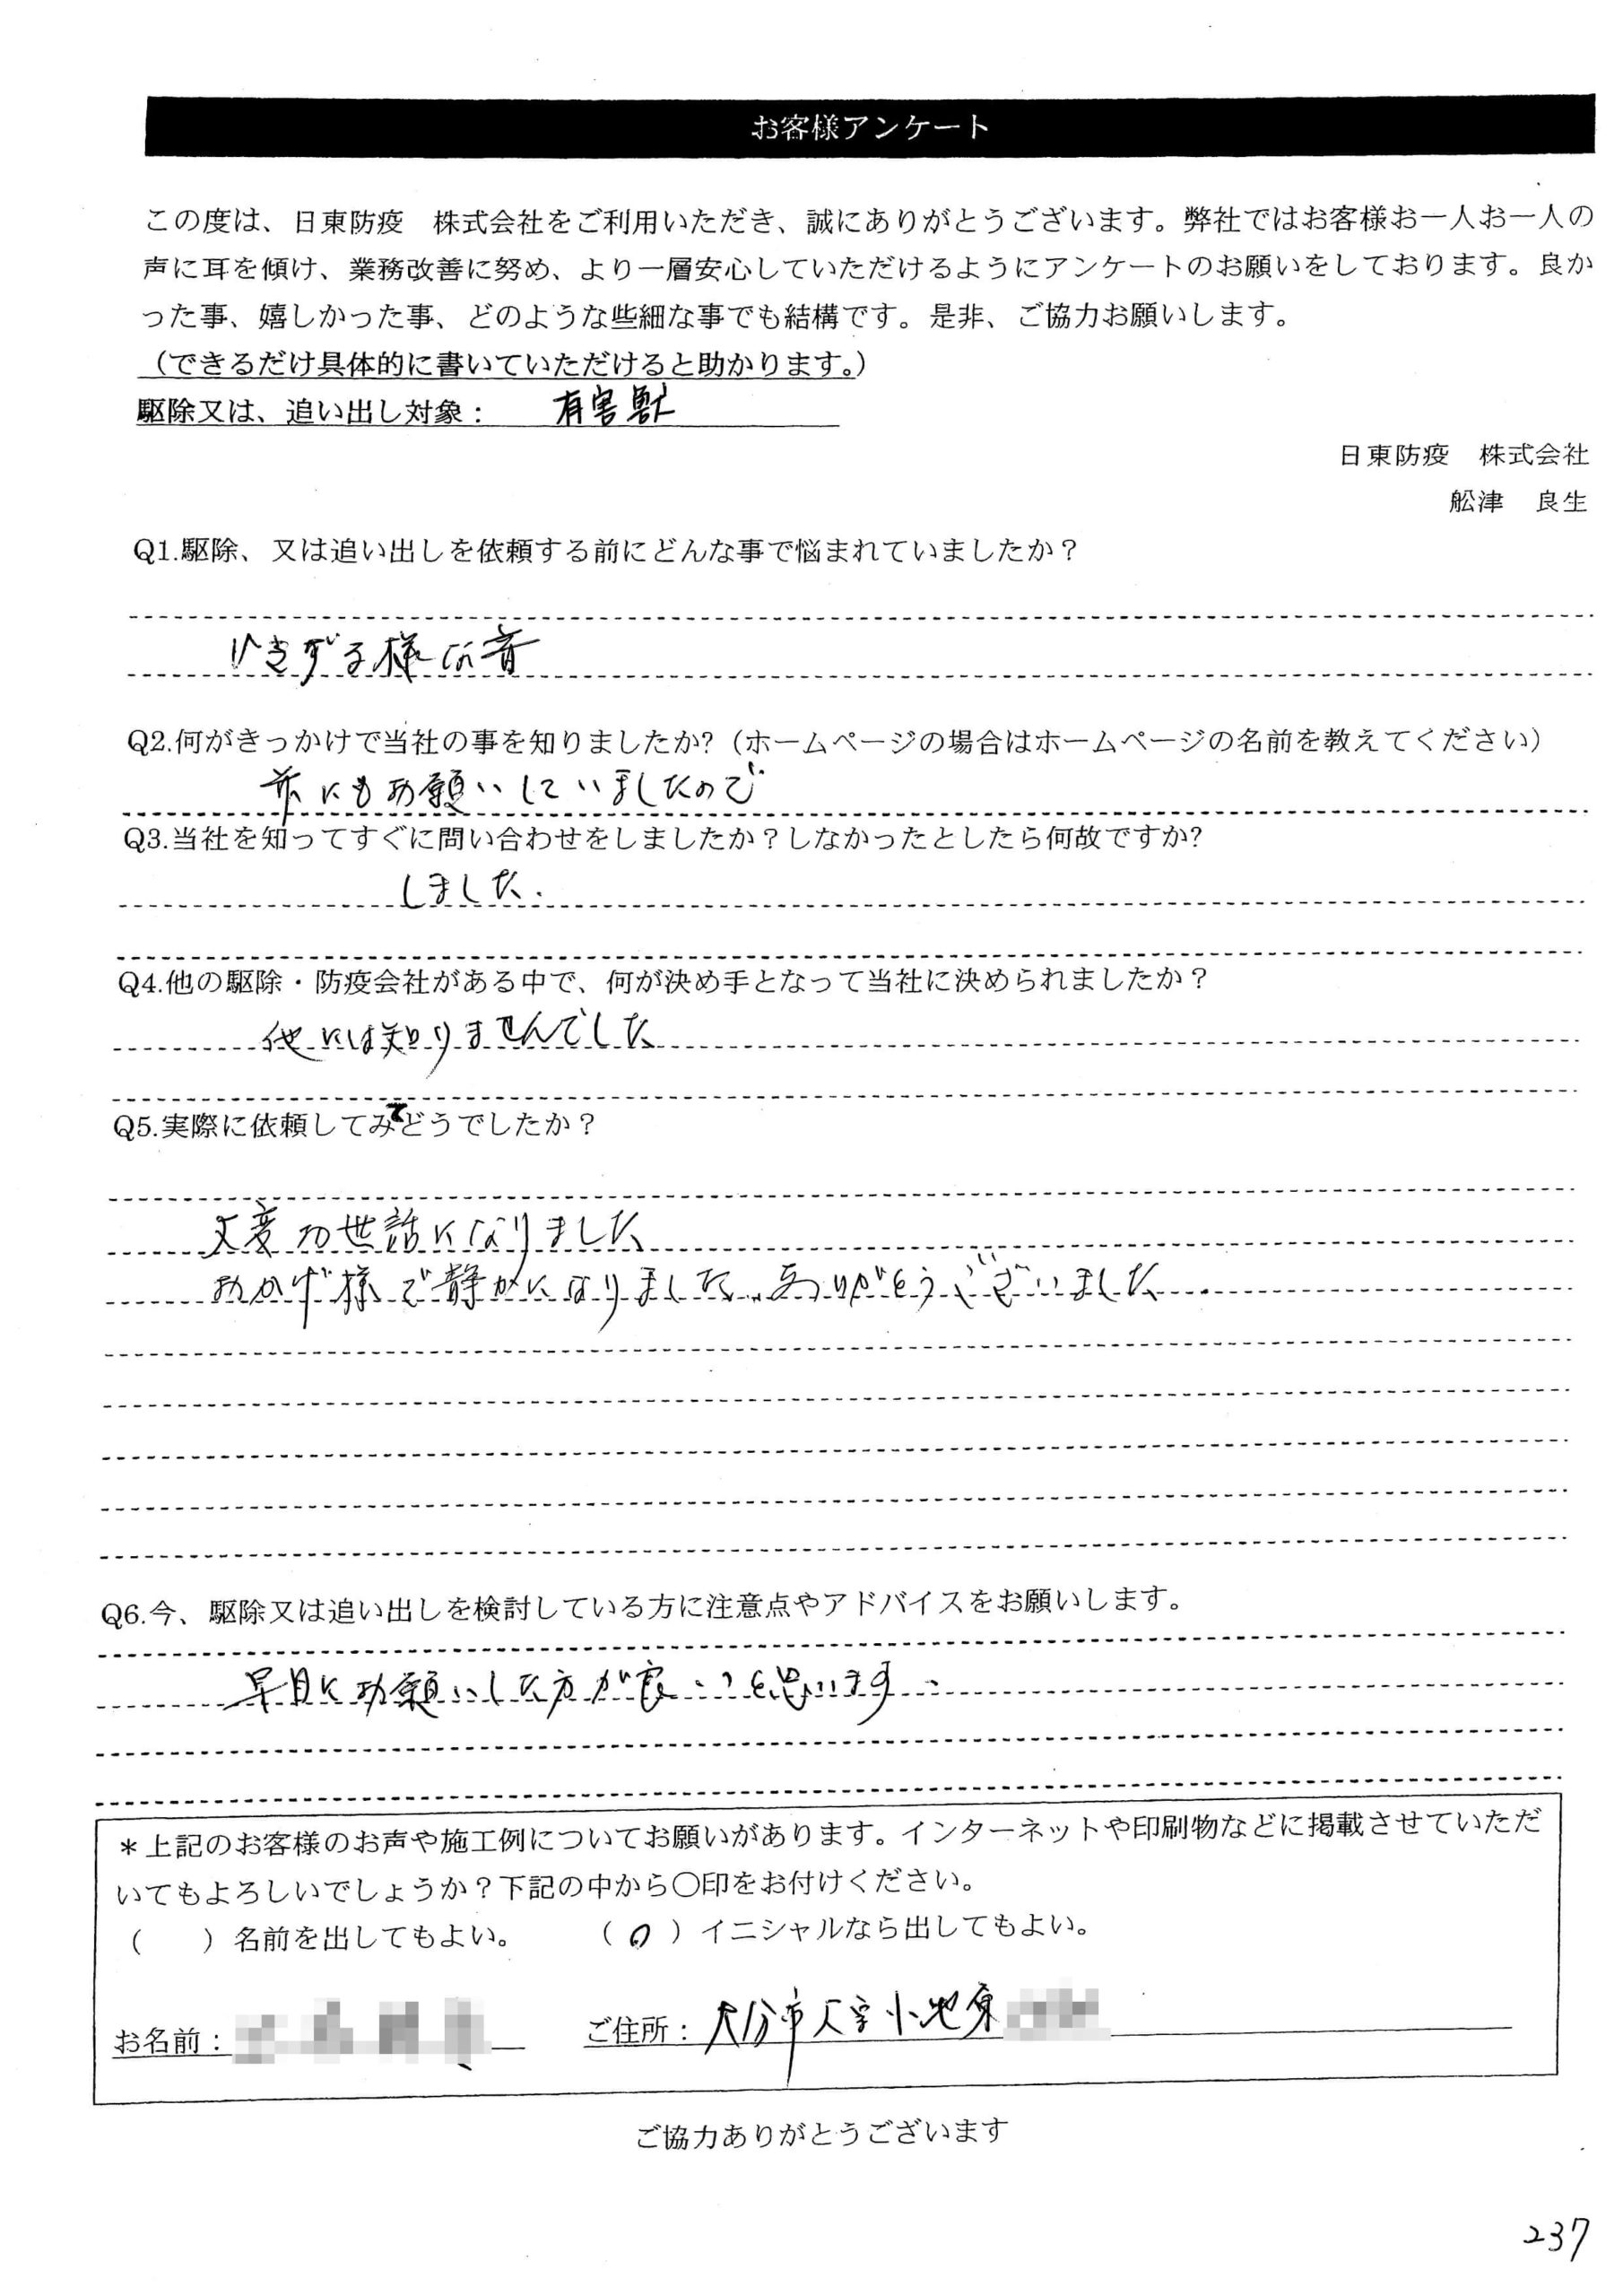 お客様アンケート
この度は、日東防疫　株式会社をご利用いただき、誠にありがとうございます。弊社ではお客様お一人お一人の
声に耳を傾け、業務改善に努め、より一層安心していただけるようにアンケートのお願いをしております。良か
った事、嬉しかった事、どのような些細な事でも結構です。是非、ご協力お願いします。
（できるだけ具体的に書いていただけると助かります。）
駆除又は、追い出し対象： 有害獣
日東防疫　株式会社
舩津　良生
Q1.駆除、又は追い出しを依頼する前にどんな事で悩まれていましたか？
ひきずる様な音
Q2.何がきっかけで当社の事を知りましたか?（ホームページの場合はホームページの名前を教えてください）
前にもお願いしていましたので
Q3.当社を知ってすぐに問い合わせをしましたか？しなかったとしたら何故ですか?
しました.
Q4.他の駆除・防疫会社がある中で、何が決め手となって当社に決められましたか？
他には知りませんでした
Q5.実際に依頼してみてどうでしたか？
大変お世話になりました
おかげ様で静かになりました、ありがとうございました.
Q6.今、駆除又は追い出しを検討している方に注意点やアドバイスをお願いします。
早目にお願いした方が良いと思います.
＊上記のお客様のお声や施工例についてお願いがあります。インターネットや印刷物などに掲載させていただ
いてもよろしいでしょうか？下記の中から〇印をお付けください。
（　　）名前を出してもよい。　　（〇）イニシャルなら出してもよい。
お名前：　　ご住所：大分市大字小池原
ご協力ありがとうございます
237